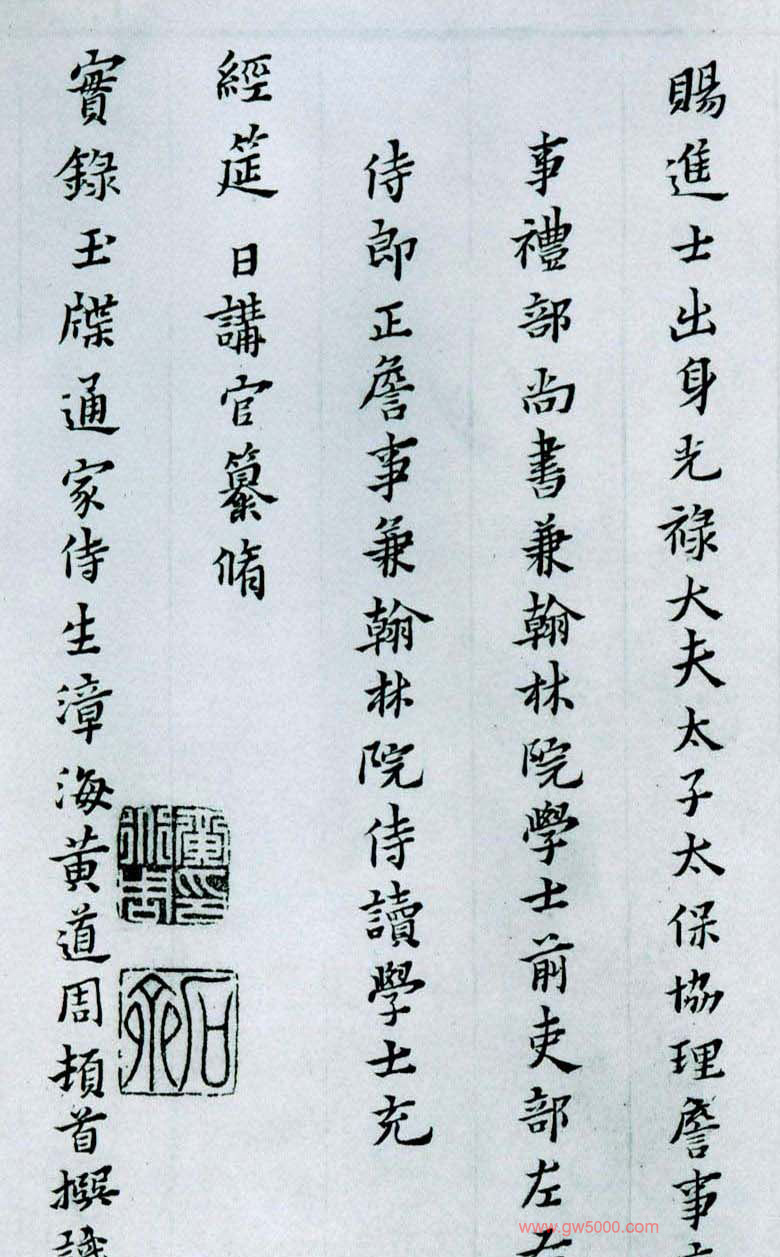 賜進士出身光祿大夫太子太保協理詹事
事禮部尚書兼翰林院學士前吏部左
侍郎正詹事兼翰林院侍讀學士充
經筵日講官纂脩
實錄玉牒通家侍生漳海黃道周頓首撰
石齋
www.gw5000.com